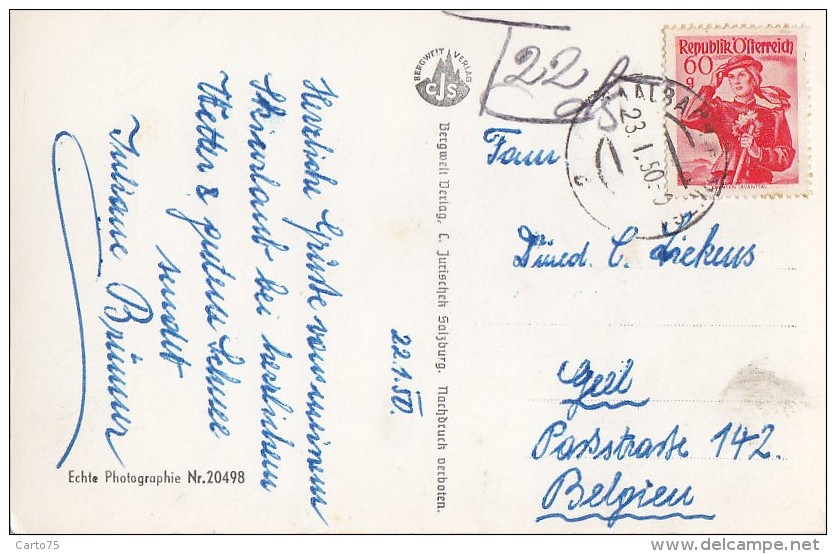 Herzliche Grüße von meinem
Skiurlaub bei herrlichem
Wetter & gutem Schnee
sendet
Juliane Brunner
22.1.50.
Echte Photographie Nr.20498
BERGWELT VERLAG
CJS
Bergwelt Verlag, C. Jurischek Salzburg. Nachdruck verboten.
T 22
Republik Österreich
60
g
SAALBA
23.1.50
Fam.
C. Liekens
Geel
Passstraße 142.
Belgien
Carto75
www.delcampe.net